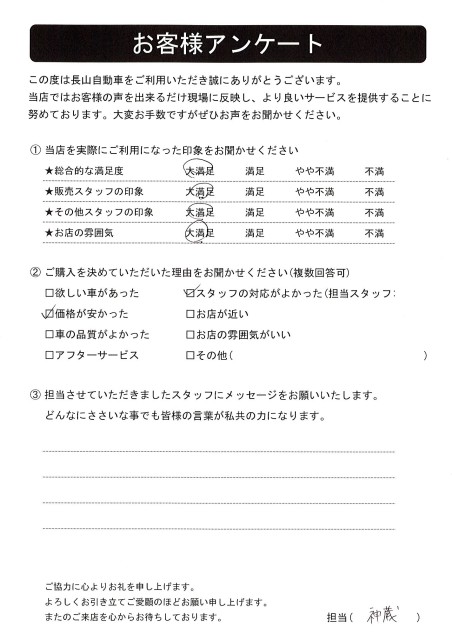 お客様アンケート
この度は長山自動車をご利用いただき誠にありがとうございます。
当店ではお客様の声を出来るだけ現場に反映し、より良いサービスを提供することに
努めております。大変お手数ですがぜひお声をお聞かせください。
① 当店を実際にご利用になった印象をお聞かせください
★総合的な満足度 大満足 満足 やや不満 不満
★販売スタッフの印象 大満足 満足 やや不満 不満
★その他スタッフの印象 大満足 満足 やや不満 不満
★お店の雰囲気 大満足 満足 やや不満 不満
② ご購入を決めていただいた理由をお聞かせください(複数回答可)
□欲しい車があった ☑スタッフの対応がよかった(担当スタッフ:
☑価格が安かった □お店が近い
□車の品質がよかった □お店の雰囲気がいい
□アフターサービス □その他( )
③ 担当させていただきましたスタッフにメッセージをお願いいたします。
どんなにささいな事でも皆様の言葉が私共の力になります。
ご協力に心よりお礼を申し上げます。
よろしくお引き立てご愛顧のほどお願い申し上げます。
またのご来店を心からお待ちしております。 担当( 神蔵 )